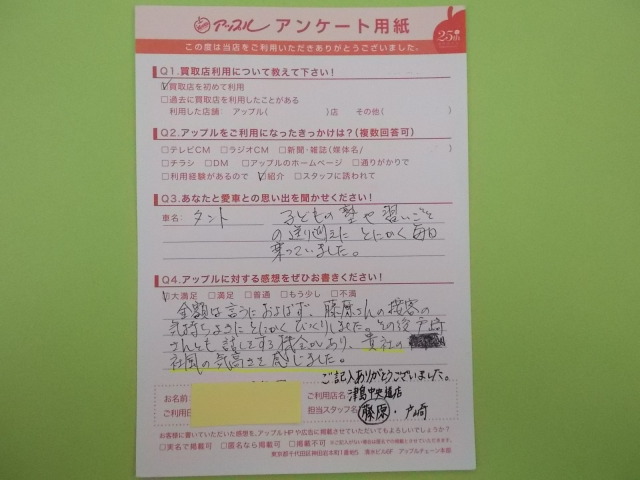 アップル アンケート用紙
25th
この度は当店をご利用いただきありがとうございました。
Q1.買取店利用について教えて下さい!
☑買取店を初めて利用
□過去に買取店を利用したことがある
利用した店舗: アップル( )店 その他( )
Q2.アップルをご利用になったきっかけは?(複数回答可)
□テレビCM □ラジオCM □新聞・雑誌(媒体名/ )
□チラシ □DM □アップルのホームページ □通りがかりで
□利用経験があるので ☑紹介 □スタッフに誘われて
Q3.あなたと愛車との思い出を聞かせください!
車名: タント 子どもの塾や習いごと
の送り迎えに とにかく毎日
乗っていました。
Q4.アップルに対する感想をぜひお書きください!
☑大満足 □満足 □普通 □もう少し □不満
金額は言うにおよばず、藤原さんの接客の
気持ちよさにとにかくびっくりしました。その後戸崎
さんとも話しをする機会があり、貴社の
社風の気高さを感じました。
ご記入ありがとうございました。
お名前
ご利用店名 津島中央道店
ご利用日
担当スタッフ名 藤原・戸崎
お客様に書いていただいた感想を、アップルHPや広告に掲載させていただいてもよろしいでしょうか?
□実名で掲載可 □匿名なら掲載可 □掲載不可 ※ご記入がない場合は匿名での掲載とさせていただきます。
東京都千代田区神田岩本町1番地5 清水ビル6F アップルチェーン本部